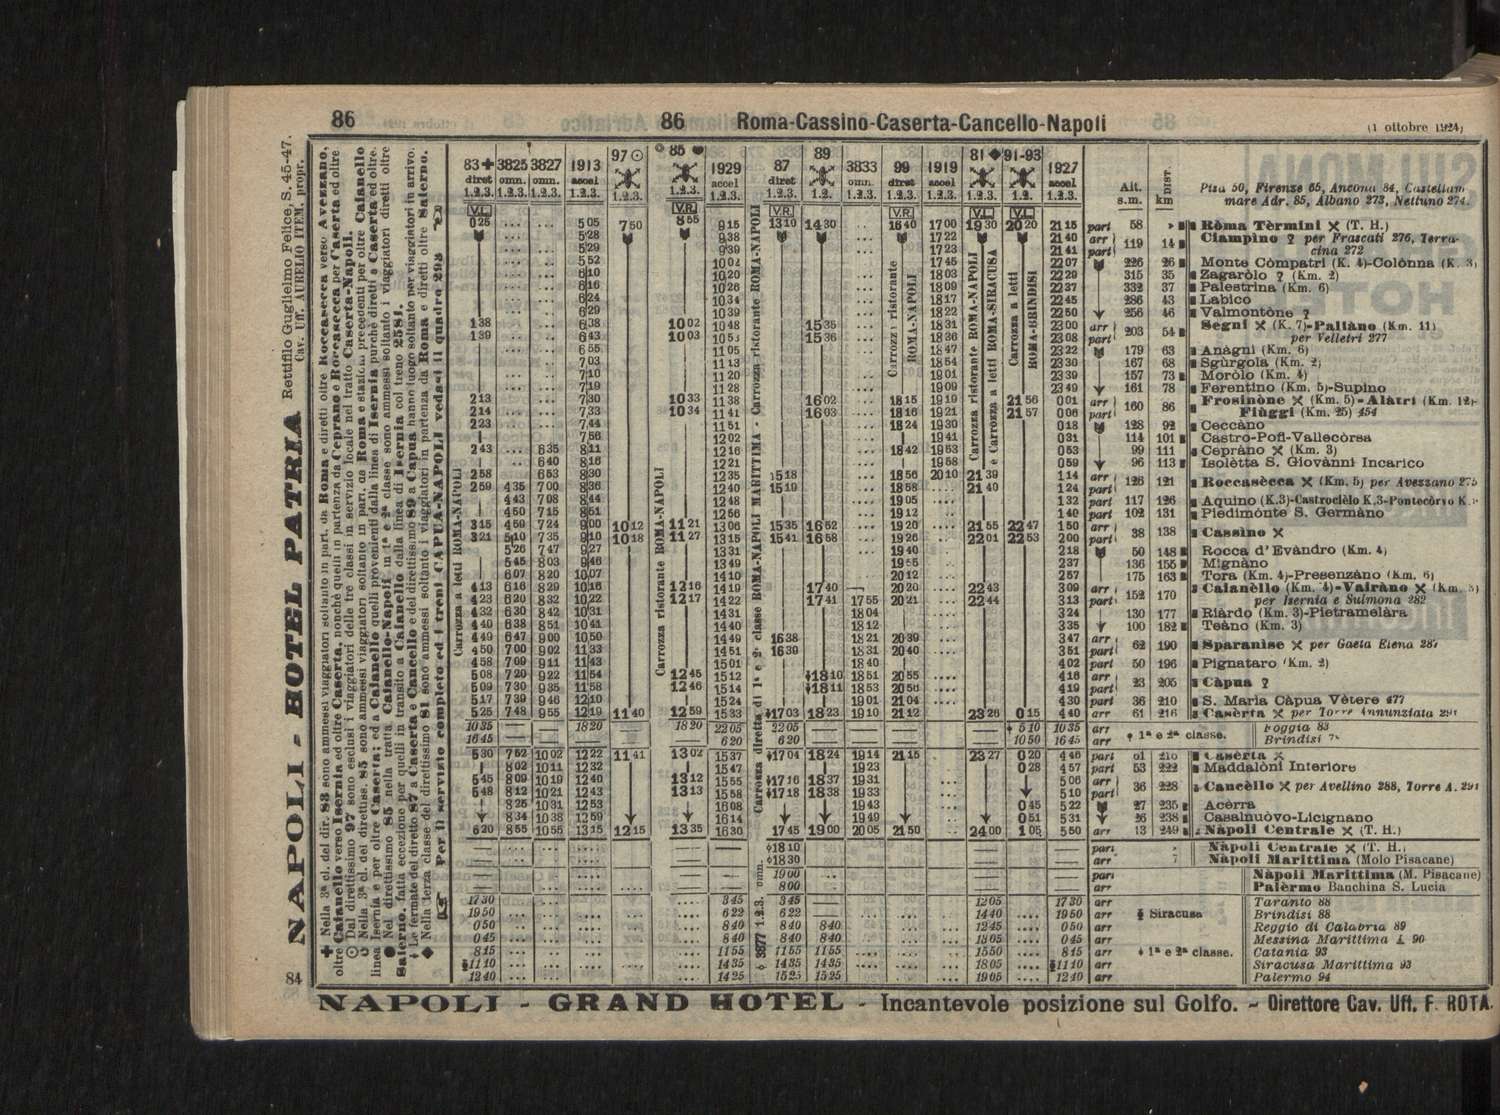 86 86 Roma-Cassino-Caserta-Cancello-Napoli (1 ottobre 1924)
NAPOLI - HOTEL PATRIA Rettifilo Guglielmo Felice, S. 45-47.
Cav. Uff. AURELIO ITEM, propr.
84
83 3825 3827 1913 97 85 1929 87 89 3833 99 1919 81 91-93 1927
diret omn. omn. accel accel diret omn. diret accel accel
1.2.3. 1.2.3. 1.2.3. 1.2.3. 1.2.3. 1.2.3. 1.2.3. 1.2.3. 1.2.3. 1.2.3. 1.2.3. 1.2.3. 1.2.3. 1.2. 1.2.3.
Alt. s.m. DIST. km
Pisa 50, Firenze 65, Ancona 84, Castellam
mare Adr. 85, Albano 273, Nettuno 274.
025 505 750 855 915 1310 1430 1640 1700 1930 2020 2115 part 58 Ròma Tèrmini (T. H.)
528 938 1722 2140 arr 119 14 Ciampino ? per Frascati 276, Terra-
529 939 1723 2141 part cina 272
552 1002 1745 2207 226 26 Monte Còmpatri (K. 4)-Colònna (K. 3)
610 1020 1803 2229 315 35 Zagaròlo ? (Km. 2)
616 1026 1809 2237 332 37 Palestrina (Km. 6)
624 1034 1817 2245 286 43 Labico
629 1039 1822 2250 256 46 Valmontòne ?
138 638 1002 1048 1535 1831 2300 arr 203 54 Segni (K. 7)-Paliàno (Km. 11)
139 643 1003 1053 1536 1836 2308 part per Velletri 277
655 1105 1847 2322 179 63 Anàgni (Km. 6)
703 1113 1854 2330 167 68 Sgùrgola (Km. 2)
710 1120 1901 2339 157 73 Moròlo (Km. 4)
719 1128 1909 2349 161 78 Ferentino (Km. 5)-Supino
213 730 1033 1138 1602 1815 1919 2156 001 arr 160 86 Frosinòne (Km. 5)-Alàtri (Km. 12)-
214 733 1034 1141 1603 1816 1921 2157 006 part Fiùggi (Km. 25) 454
223 744 1151 1824 1930 018 128 92 Ceccàno
756 1202 1941 031 114 101 Castro-Pofi-Vallecòrsa
243 635 811 1216 1842 1953 053 99 111 Cepràno (Km. 3)
640 816 1221 1958 059 96 113 Isolètta S. Giovànni Incarico
258 653 830 1235 1518 1856 2010 2139 114 arr 126 121 Roccasècca (Km. 5) per Avezzano 275
259 435 700 836 1240 1519 1858 2140 124 part
443 708 844 1248 1905 132 part 117 126 Aquino (K.3)-Castrocièlo K.3-Pontecòrvo K.
450 715 851 1256 1912 140 part 102 131 Piedimónte S. Germàno
315 459 724 900 1012 1121 1306 1535 1652 1920 2155 2247 150 arr 38 138 Cassino
321 510 735 910 1018 1127 1315 1541 1658 1926 2201 2253 200 part
526 747 927 1331 1940 218 50 148 Rocca d'Evàndro (Km. 4)
545 803 946 1349 1955 237 136 155 Mignàno
607 820 1007 1410 2012 257 175 163 Tora (Km. 4)-Presenzàno (Km. 6)
413 616 829 1016 1216 1419 1740 2020 2243 309 arr 152 170 Caianèllo (Km. 4)-Vairàno (Km. 5)
423 620 832 1022 1217 1422 1741 1755 2021 2244 313 part per Isernia e Sulmona 282
432 630 842 1031 1431 1804 324 130 177 Riàrdo (Km. 3)-Pietramelàra
440 638 851 1041 1440 1812 335 100 182 Teàno (Km. 3)
449 647 900 1050 1449 1638 1821 2039 347 arr 62 190 Sparanise per Gaeta Elena 287
450 700 902 1133 1451 1639 1831 2040 351 part
458 709 911 1143 1501 1840 402 part 50 196 Pignataro (Km. 2)
508 720 922 1154 1245 1512 1810 1851 2055 416 arr 23 205 Càpua ?
509 730 935 1158 1246 1514 1811 1853 2056 419 part
517 739 946 1210 1524 1901 2104 430 part 36 210 S. Maria Càpua Vètere 477
525 748 955 1219 1140 1259 1533 1703 1823 1910 2112 2326 015 440 arr 61 216 Casèrta per Torre Annunziata 291
1035 1820 1820 2205 2205 510 1035 arr 1ª e 2ª classe. Foggia 83
1645 620 620 1050 1645 arr Brindisi
530 752 1002 1222 1141 1302 1537 1704 1824 1914 2115 2327 020 446 part 61 216 Casèrta
802 1011 1232 1547 1923 028 457 part 53 222 Maddalòni Interiore
545 809 1019 1240 1312 1555 1716 1837 1931 506 arr 36 228 Cancèllo per Avellino 288, Torre A. 291
548 812 1021 1243 1313 1558 1718 1838 1933 510 part
825 1031 1253 1608 1943 045 522 27 235 Acèrra
834 1038 1259 1614 1949 051 531 26 238 Casalnuòvo-Licignano
620 855 1055 1315 1215 1335 1630 1745 1900 2005 2150 2400 105 550 arr 13 249 Nàpoli Centrale (T. H.)
1810 part Nàpoli Centrale (T. H.)
1830 arr 7 Nàpoli Marittima (Molo Pisacane)
1900 part Nàpoli Marittima (M. Pisacane)
800 arr Palèrmo Banchina S. Lucia
1730 345 345 1205 1730 arr Taranto 88
1950 622 622 1440 1950 arr Siracusa Brindisi 88
050 840 840 840 1245 050 arr Reggio di Calabria 89
045 840 840 840 1305 045 arr Messina Marittima 90
815 1155 1155 1155 1550 815 arr 1ª e 2ª classe. Catania 93
1110 1435 1435 1435 1805 1110 arr Siracusa Marittima 93
1240 1425 1525 1525 1905 1240 arr Palermo 94
Carrozza a letti ROMA-NAPOLI
Carrozza ristorante ROMA-NAPOLI
Carrozza diretta di 1ª e 2ª classe ROMA-NAPOLI MARITTIMA - Carrozza ristorante ROMA-NAPOLI
3877 1.2.3. omn.
Carrozza ristorante ROMA-NAPOLI
Carrozza ristorante ROMA-NAPOLI e Carrozza a letti ROMA-SIRACUSA
Carrozza a letti ROMA-BRINDISI
Nella 3ª cl. del dir. 83 sono ammessi viaggiatori soltanto in part. da Roma e diretti oltre Roccasecca verso Avezzano,
oltre Caianello verso Isernia ed oltre Caserta, nonchè quelli in partenza da Ceprano e Roccasecca per Caserta ed oltre
Dal direttissimo 97 sono esclusi i viaggiatori delle tre classi in servizio locale nel tratto Caserta-Napoli.
Nella 3ª cl. del direttiss. 85 sono ammessi viaggiatori soltanto in part. da Roma e stazioni precedenti per oltre Caianello
linea Isernia e per oltre Caserta; ed a Caianello quelli provenienti dalla linea di Isernia purchè diretti a Caserta ed oltre.
Nel direttissimo 85 nella tratta Caianello-Napoli, in 1ª e 2ª classe sono ammessi soltanto i viaggiatori diretti oltre
Salerno, fatta eccezione per quelli in transito a Caianello dalla linea di Isernia col treno 2581.
Le fermate del diretto 87 a Caserta e Cancello e del direttissimo 89 a Capua hanno luogo soltanto per viaggiatori in arrivo.
Nella terza classe del direttissimo 81 sono ammessi soltanto i viaggiatori in partenza da Roma e diretti oltre Salerno.
Per il servizio completo ed i treni CAPUA-NAPOLI vedasi il quadro 293
NAPOLI - GRAND HOTEL - Incantevole posizione sul Golfo. - Direttore Cav. Uff. F. ROTA.